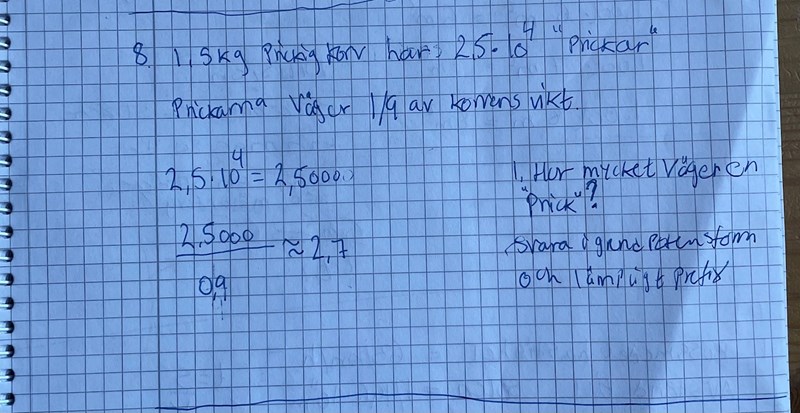 8. 1,5kg Prickig korv har: 2,5·10⁴ "Prickar"
Prickarna Väger 1/9 av korvens vikt.
2,5·10⁴ = 2,5000
2,5000 / 0,9 ≈ 2,7
1. Hur mycket Väger en
"Prick"?
Svara i grundpotensform
och lämpligt prefix